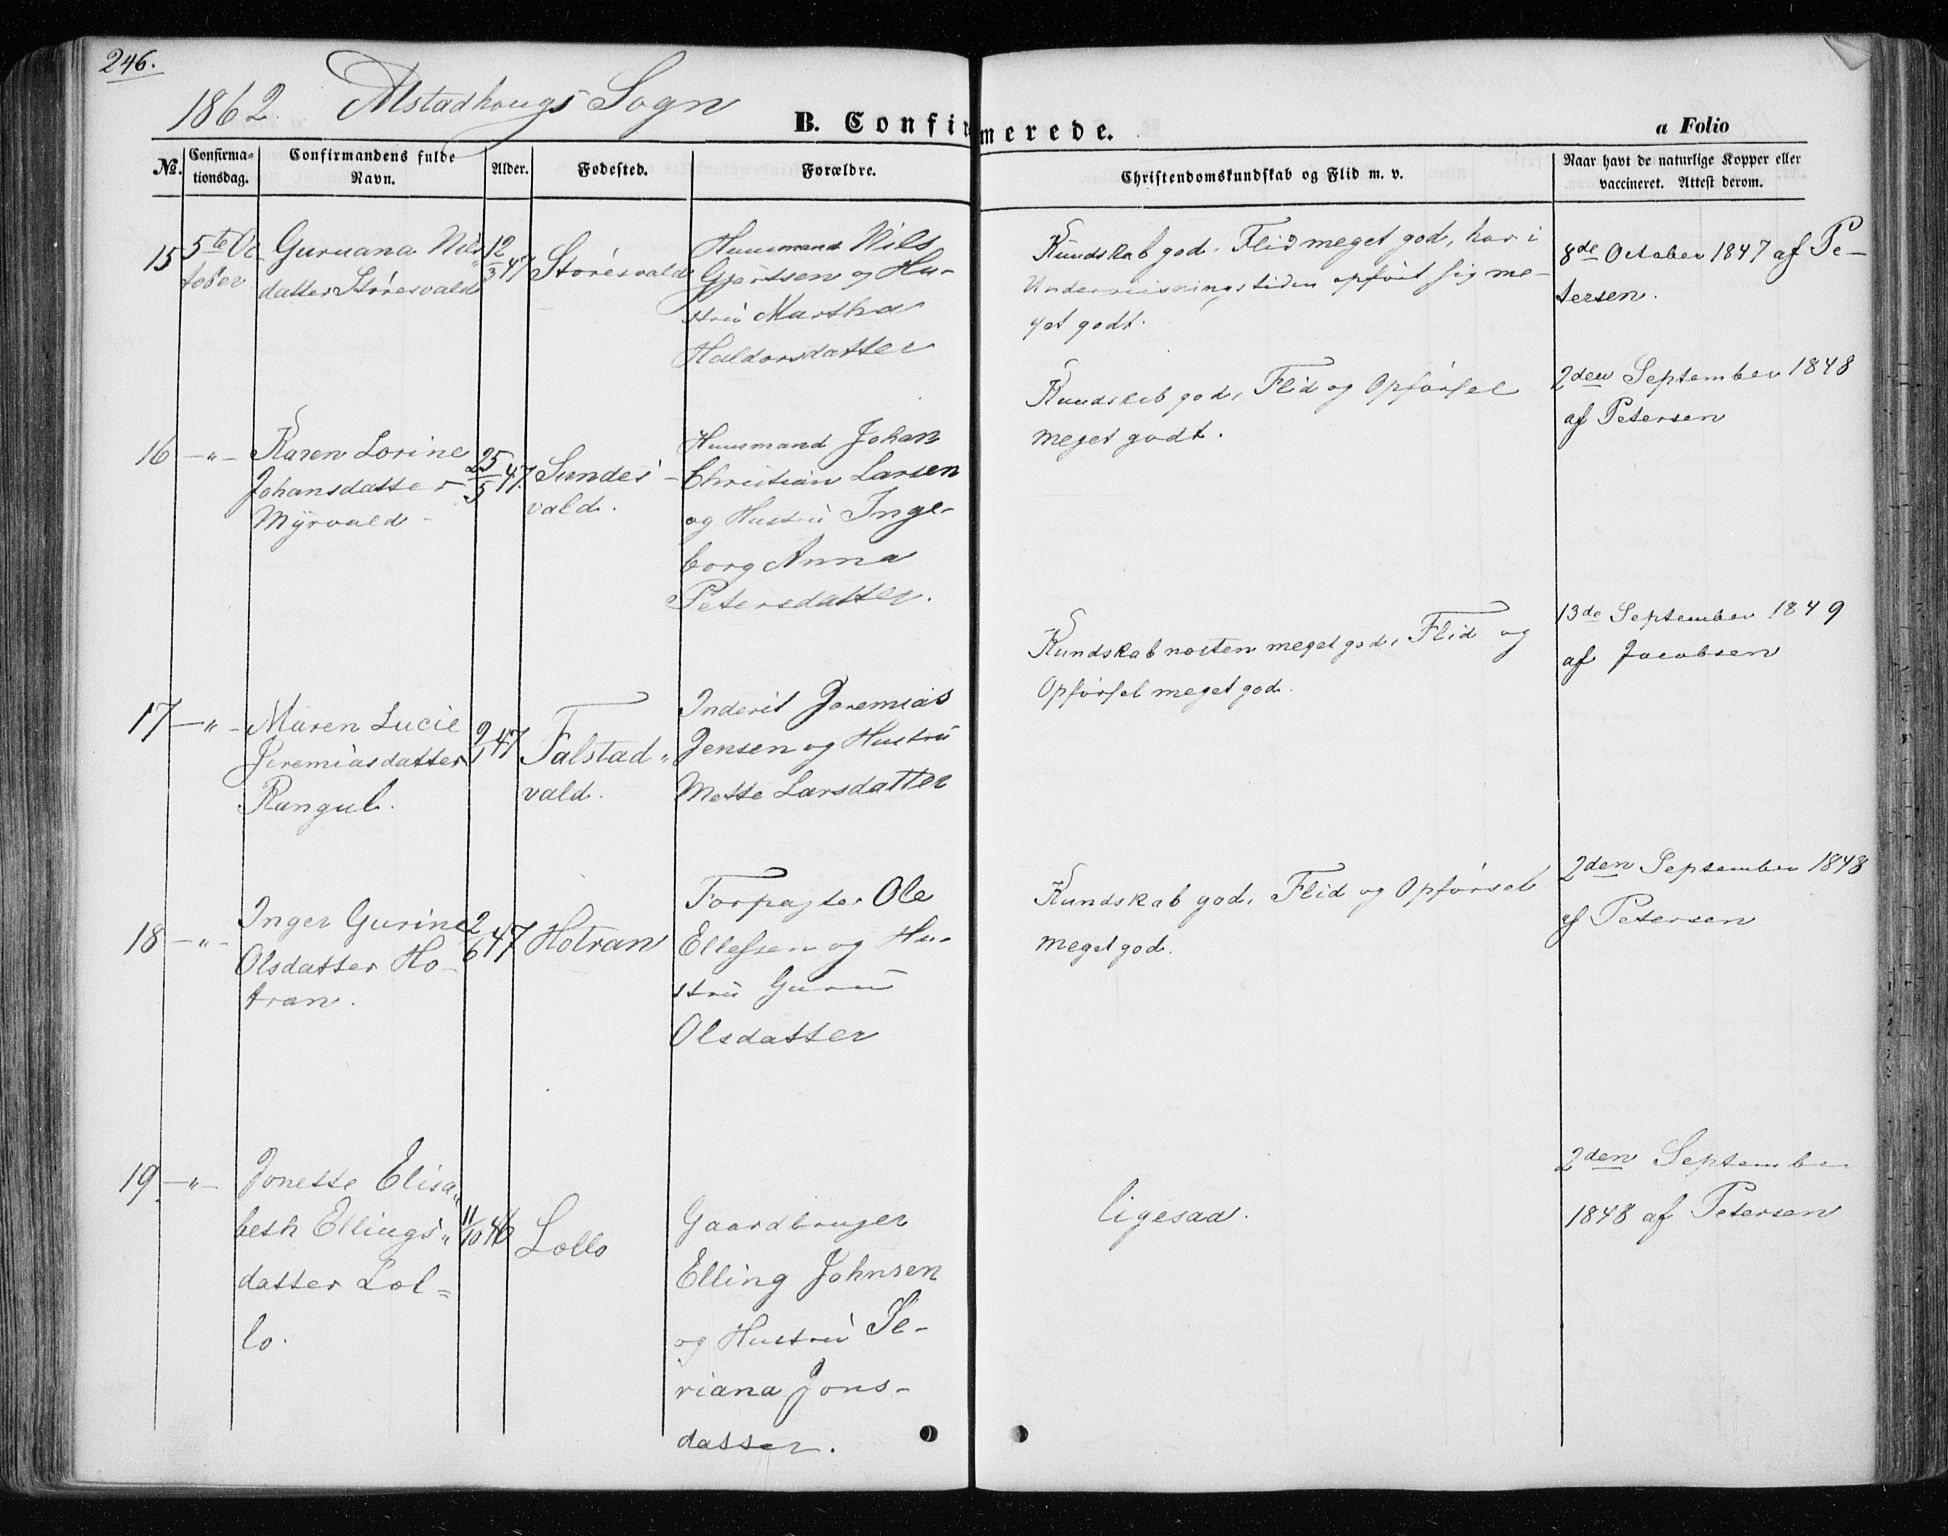 246.
1862. Alstadhougs Sogn
B. Confirmerede.
a Folio
No.
Confirma-
tionsdag.
Confirmandens fulde
Navn.
Alder.
Fødested.
Forældre.
Christendomskundskab og Flid m. v.
Naar havt de naturlige Kopper eller
vaccineret. Attest derom.
15
5te Oc
tober
Guruana Nils
datter Störesvald
12/3 47
Störesvald
Huusmand Nils
Gjørtsen og Hu-
strü Martha
Haldorsdatter
Kundskab god. Flid meget god, har i
Underviisningstiden opført sig me-
get godt.
8de October 1847 af Pe-
tersen.
16
-"-
Karen Lorine
Johansdatter
Myrvald
25/5 47
Sundes
vald.
Huusmand Johan
Christian Larsen
og Hustrü Inge-
borg Anna
Petersdatter.
Kundskab god, Flid og Opførsel
meget godt.
2den September 1848
af Petersen
17
-"-
Maren Lucie
Jeremiasdatter
Rungul.
9/1 47
Falstad
vald.
Inderst Jeremias
Jensen og Hustrü
Mette Larsdatter
Kundskab næsten meget god, Flid og
Opførsel meget god.
13de September 1849
af Jacobsen
18
-"-
Inger Gurine
Olsdatter Ho-
tran.
2/6 47
Hotran
Forpagter Ole
Ellefsen og Hu-
strü Gurü
Olsdatter
Kundskab god, Flid og Opførsel
meget god.
2den September 1848
af Petersen
19.
-"-
Jonette Elisa
beth Ellings
datter Lol-
lo.
11/10 46
Lollo
Gaardbruger
Elling Johnsen
og Hustrü Se-
riana Jons-
datter.
ligesaa.
2den September
1848 af Petersen